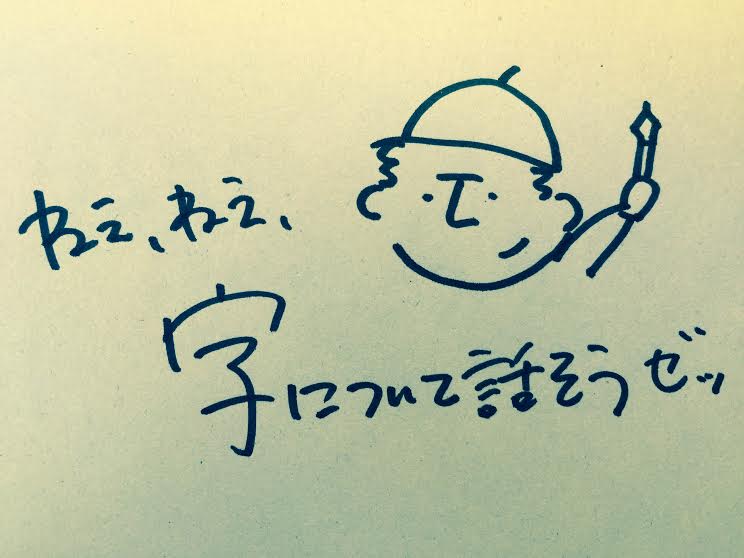 ねえ、ねえ、
字について話そうゼッ